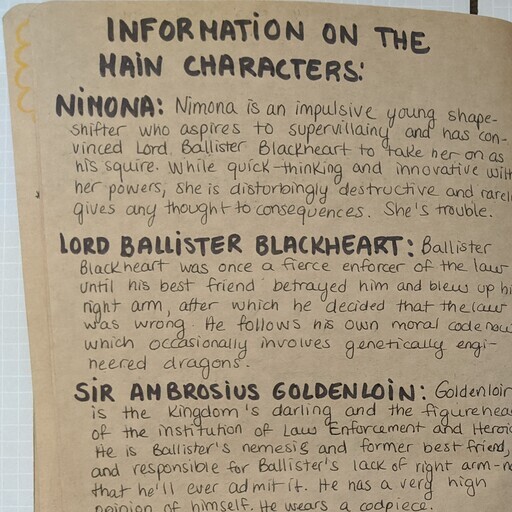 INFORMATION ON THE
MAIN CHARACTERS:
NIMONA: Nimona is an impulsive young shape-
shifter who aspires to supervillainy and has con-
vinced Lord Ballister Blackheart to take her on as
his squire. While quick-thinking and innovative with
her powers, she is disturbingly destructive and rarel
gives any thought to consequences. She's trouble.
LORD BALLISTER BLACKHEART: Ballister
Blackheart was once a fierce enforcer of the law
until his best friend betrayed him and blew up hi
right arm, after which he decided that the law
was wrong. He follows his own moral code now
which occasionally involves genetically engi-
neered dragons.
SIR AMBROSIUS GOLDENLOIN: Goldenloin
is the Kingdom's darling and the figurehea
of the institution of Law Enforcement and Heroic
He is Ballister's nemesis and former best friend,
and responsible for Ballister's lack of right arm-n
that he'll ever admit it. He has a very high
opinion of himself. He wears a codpiece.